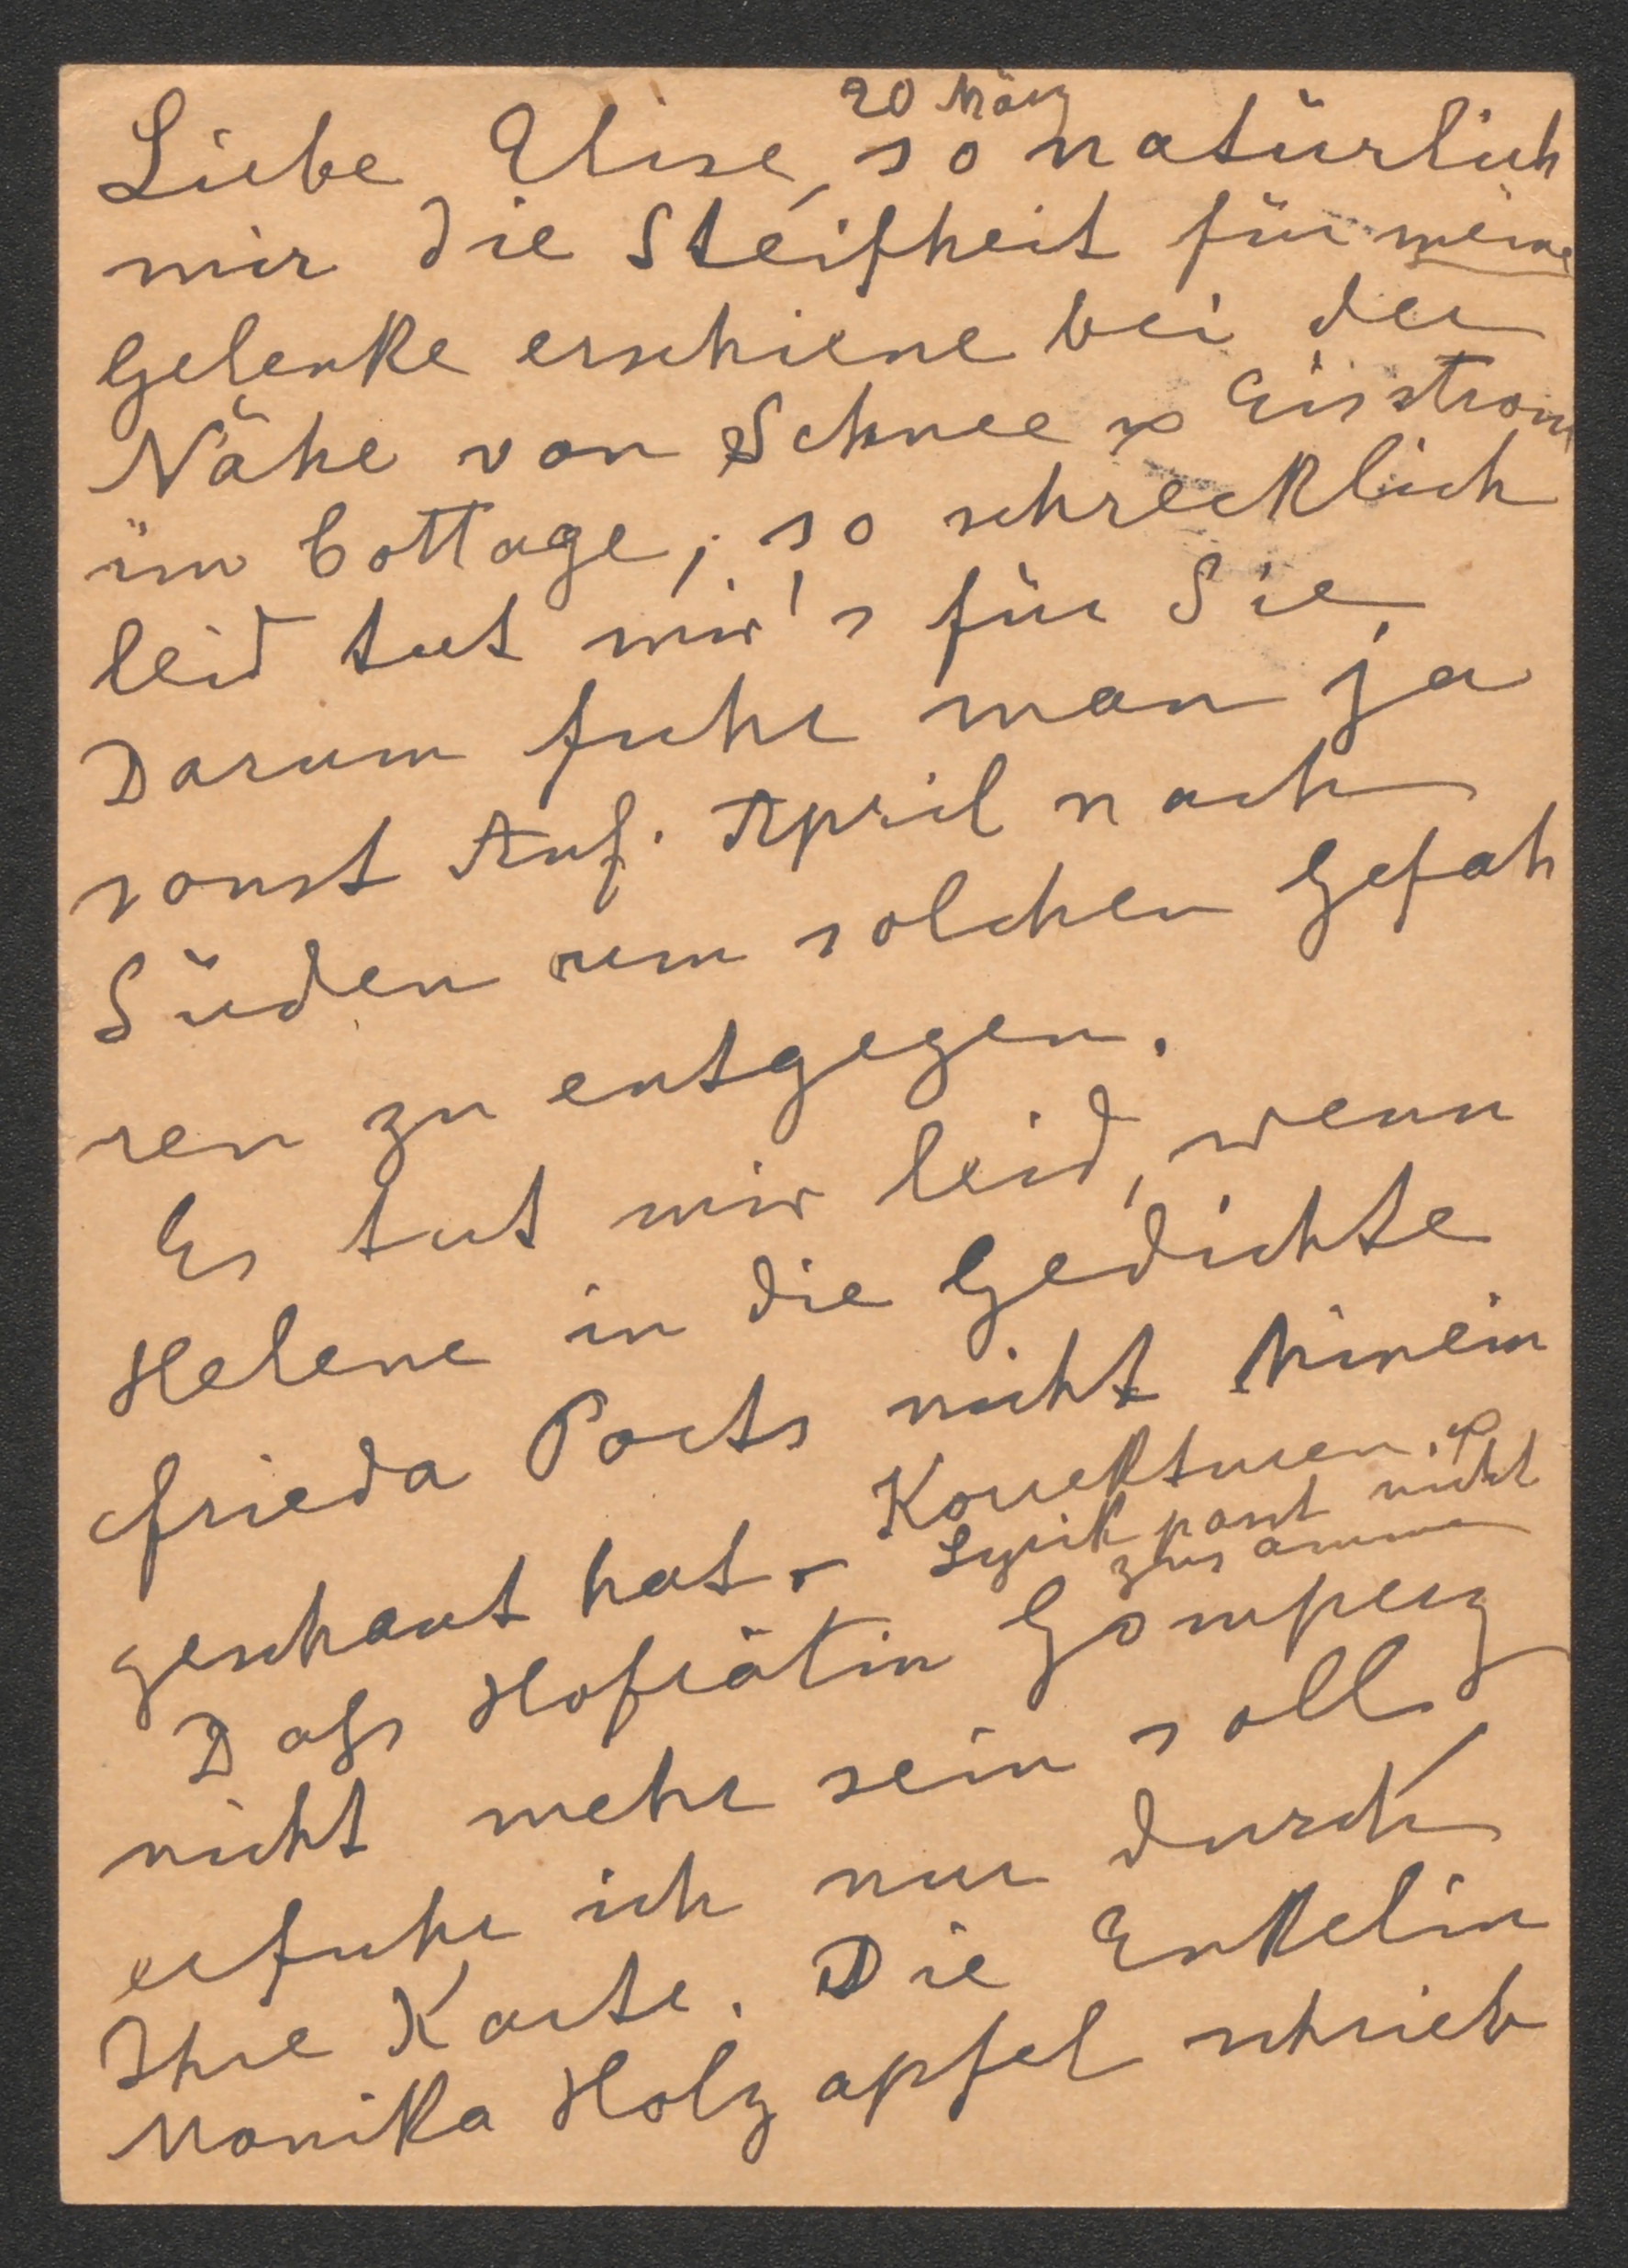 20 März
Liebe Elise, so natürlich
mir die Steifheit für meine
Gelenke erschiene bei der
Nähe von Schnee u Eisstrom
im Cottage, so schrecklich
leid tut mir's für Sie.
Darum fuhr man ja
sonst Anf. April nach
Süden um solchen Gefah
ren zu entgegen.
Es tut mir leid, wenn
Helene in die Gedichte
Frieda Ports nicht hinein
geschaut hat. – Korrekturen u
Lyrik passt nicht
zusammen
Dass Hofrätin Gomperz
nicht mehr sein soll
erfuhr ich nur durch
Ihre Karte. Die Enkelin
Monika Holzapfel schrieb